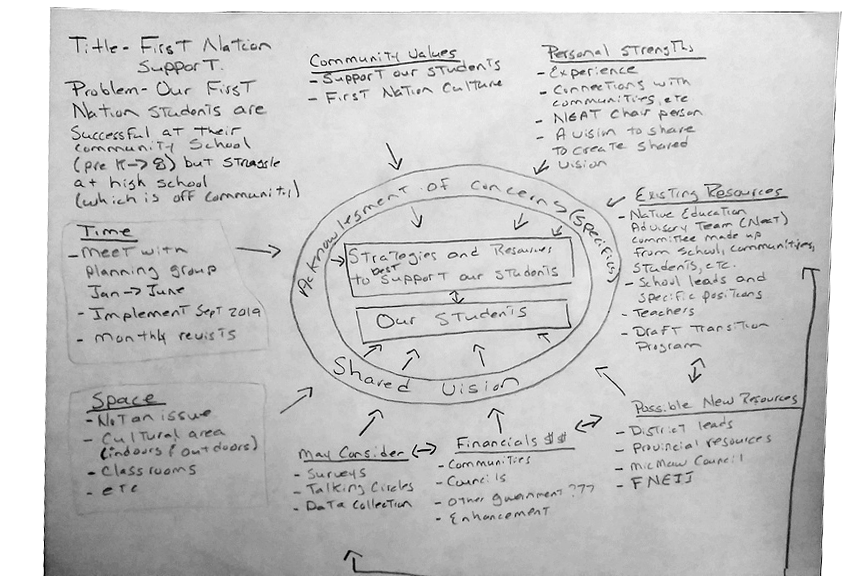 Title- First Nation
Support.
Problem- Our First
Nation students are
Successful at their
community School
(pre K→8) but struggle
at high school
(which is off community)
Community Values
- Support our students
- First Nation Culture
Personal Strengths
- Experience
- Connections with
communities, etc
- NEAT Chair person
- A vision to share
to create shared
vision
Time
- Meet with
planning group
Jan → June
- Implement Sept 2019
- monthly revisits
Space
- Not an issue
- Cultural area
(indoors & outdoors)
- Classrooms
- etc
Acknowlesment of Concerns (specifics)
Strategies and Resources
best
to support our students
Our Students
Shared Vision
Existing Resources
- Native Education
Advisory Team (Neat)
committee made up
from school, communities,
students, etc.
- School leads and
specific positions
- Teachers
- Draft Transition
Program
May Consider
- Surveys
- Talking Circles
- Data Collection
Financials $$
- Communities
- Councils
- Other government ???
- Enhancement
Possible New Resources
- District leads
- Provincial resources
- Micmaw Council
- FNEII